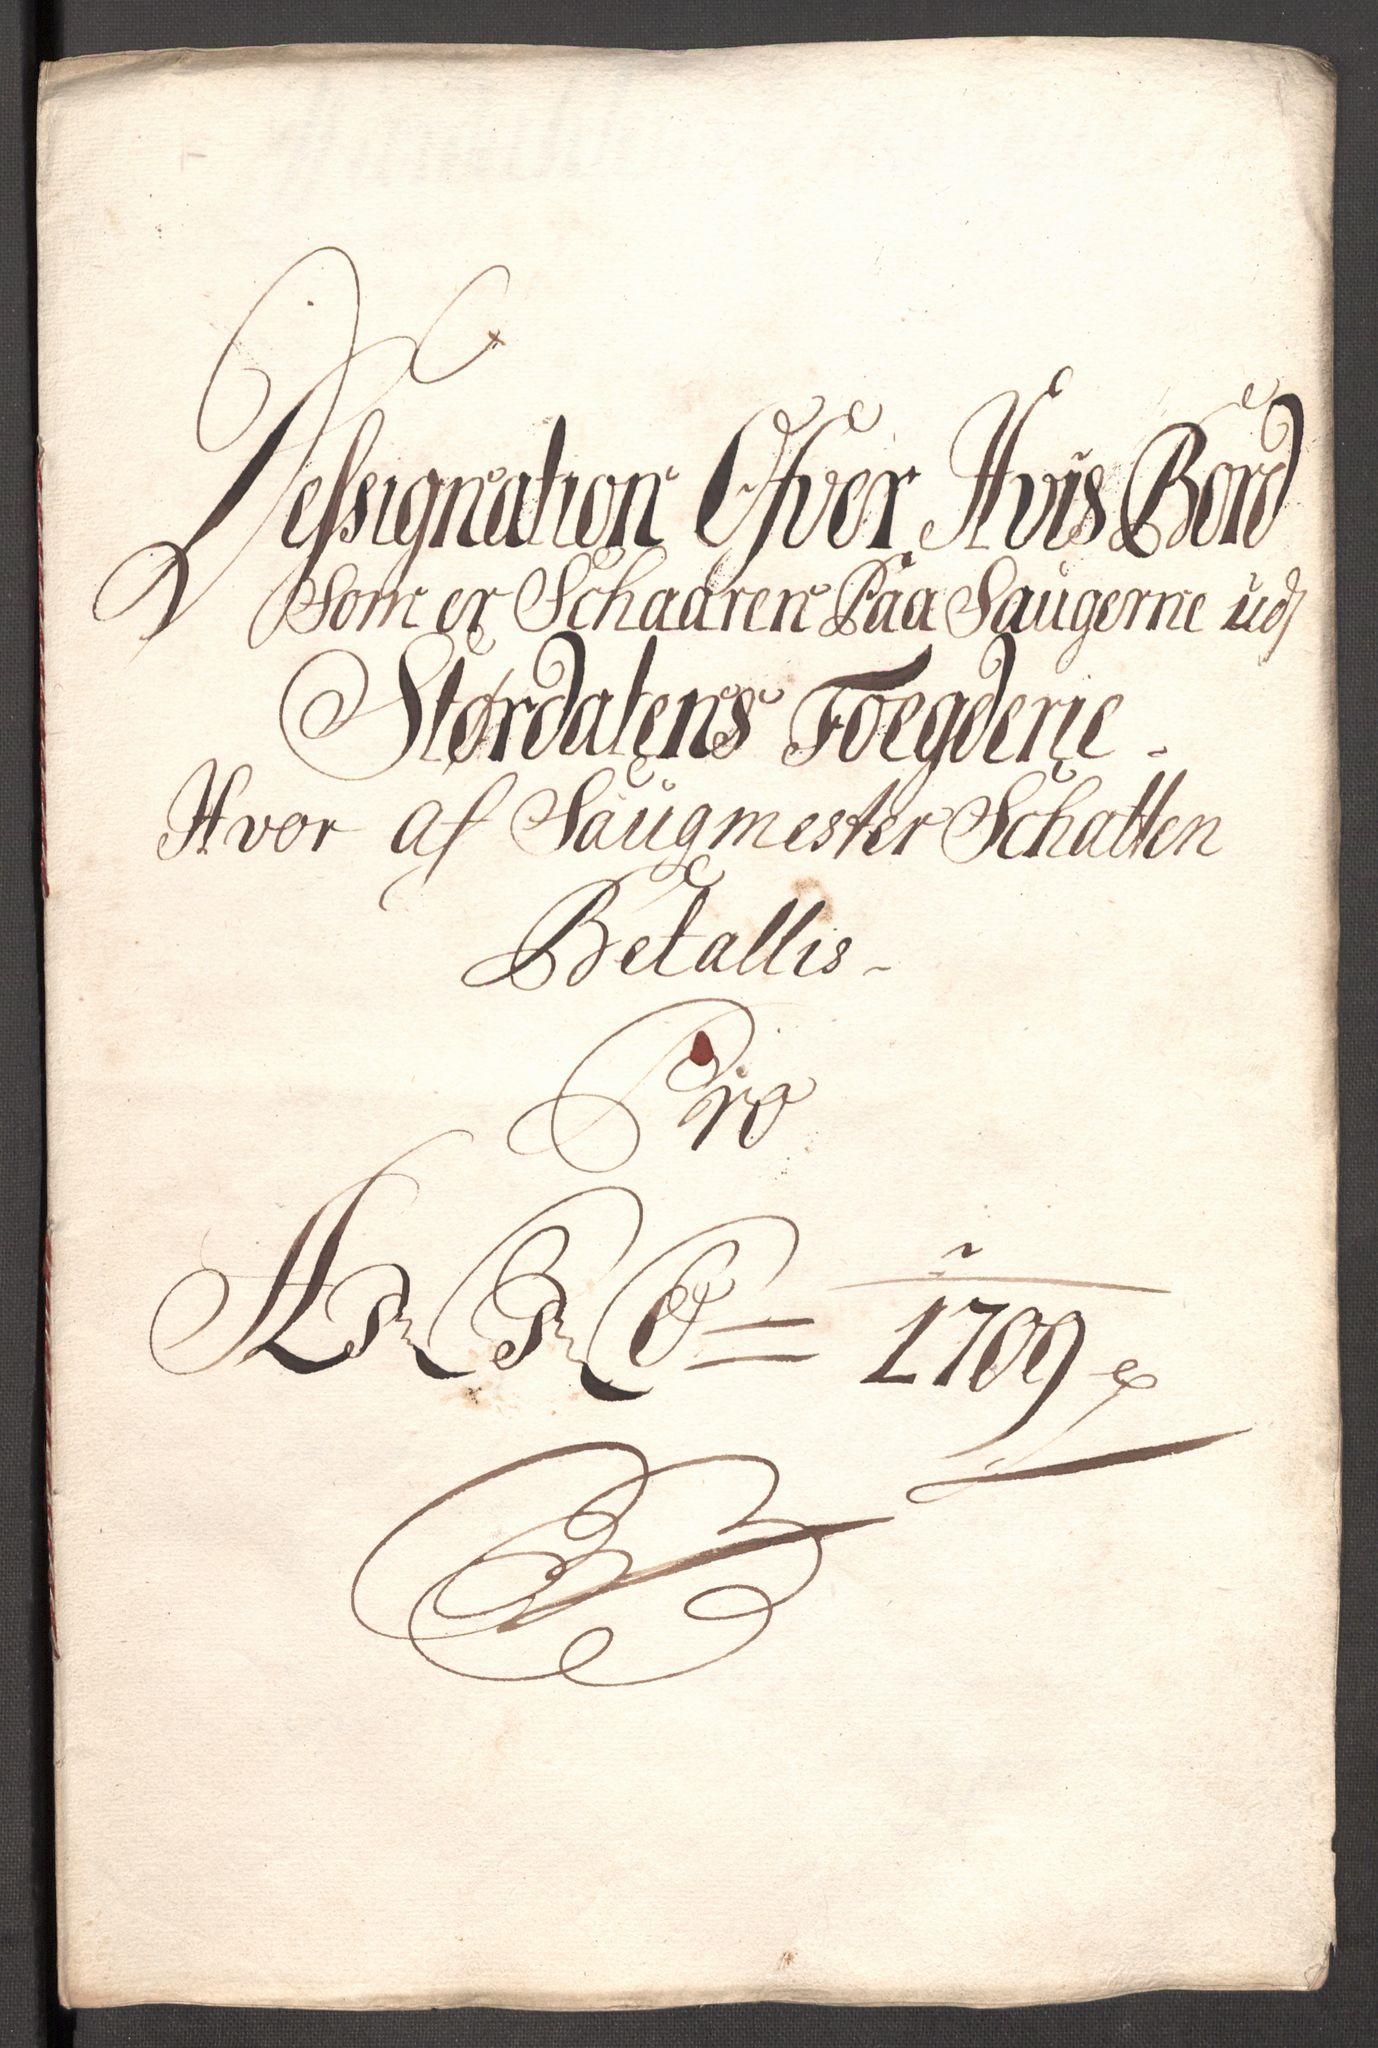 Dessignation Ofver Hvis Bord
Som er Schaaren Paa Saugerne udj
Størdalens Foegderie
Hvor af Saugmester Schatten
Betallis
Pro
1709